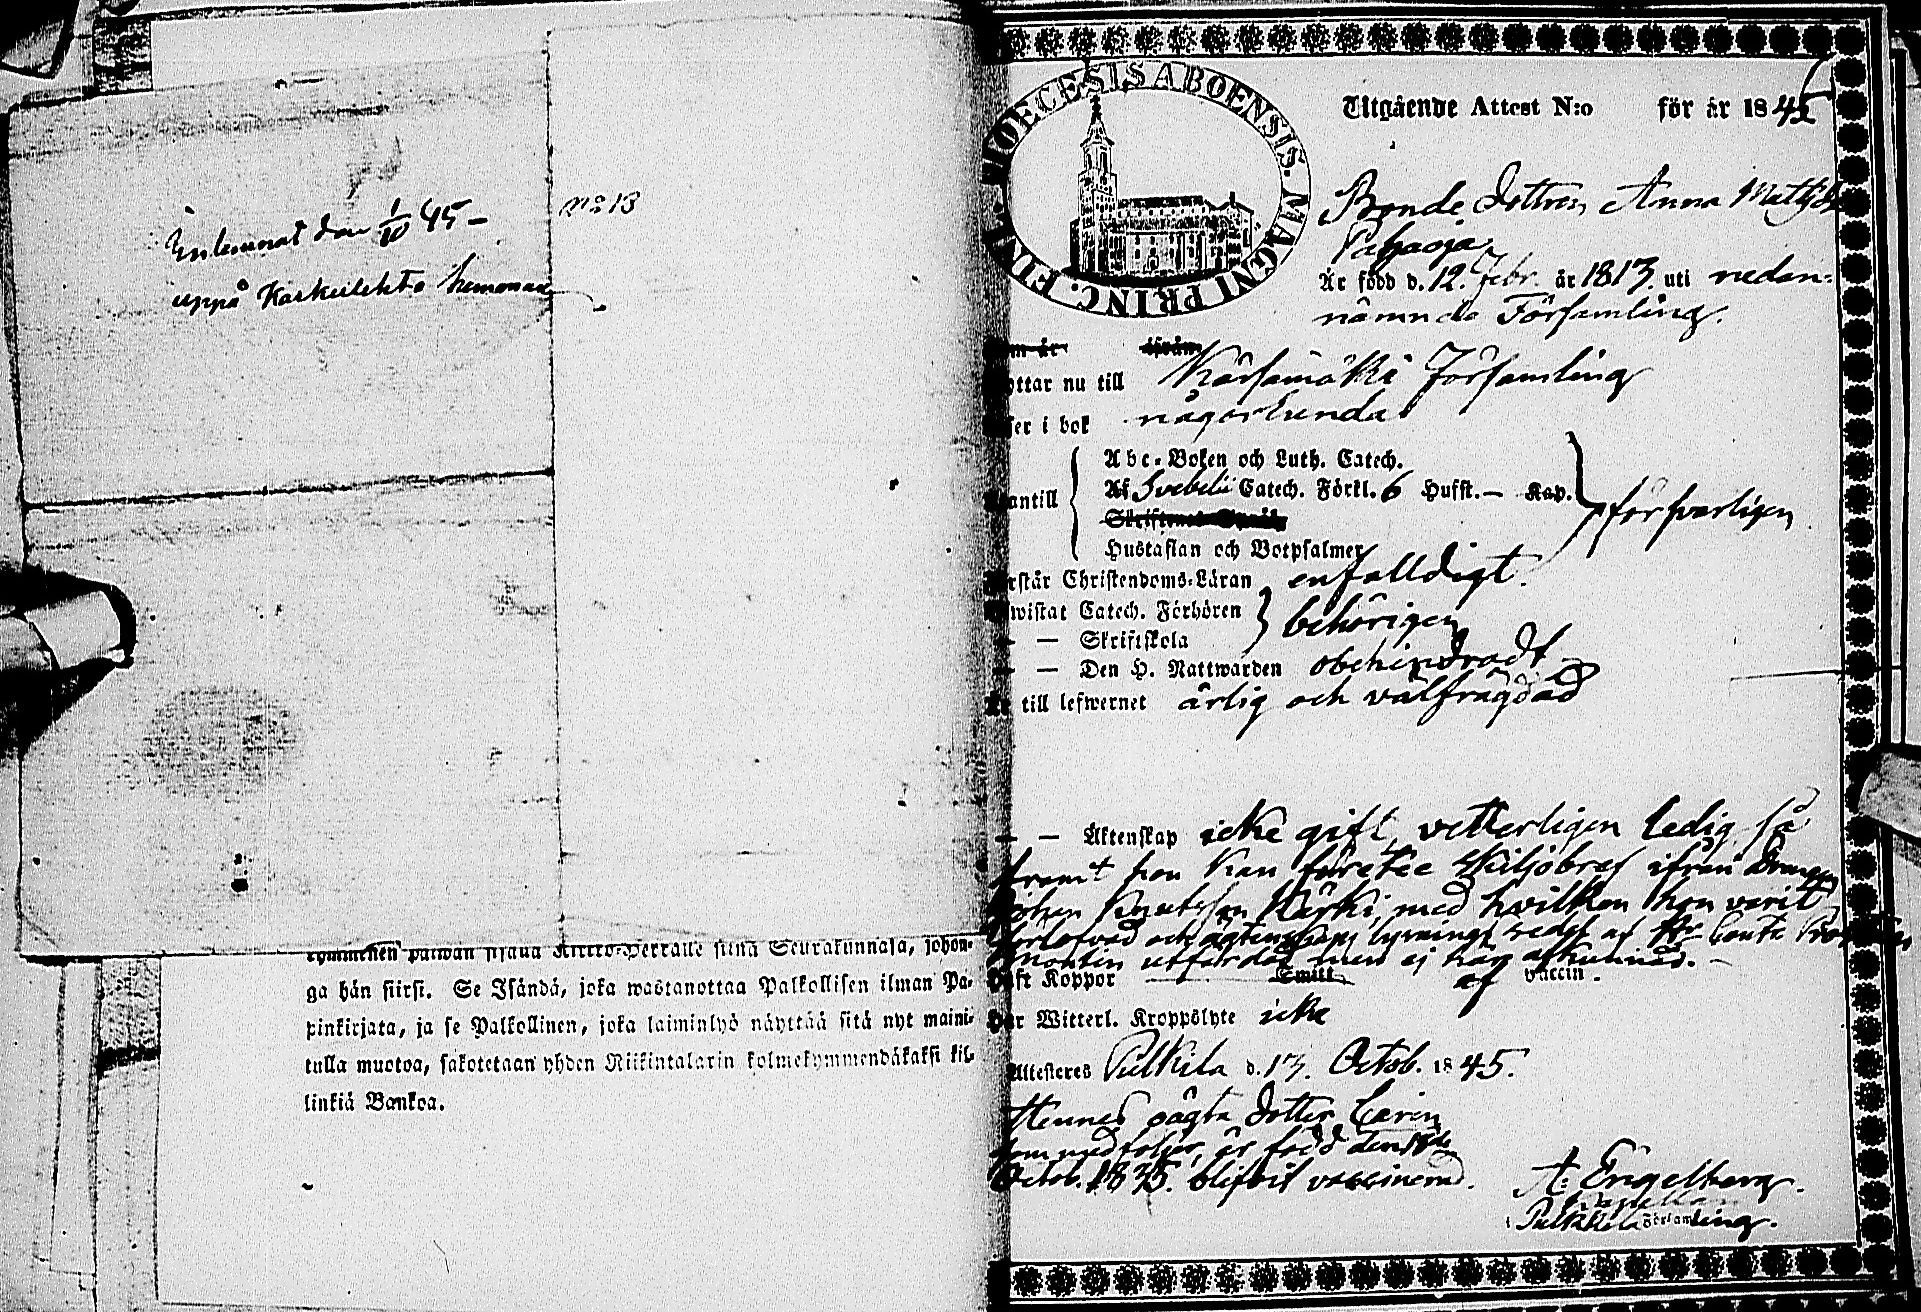 Inlemnat den 1/10 45 –
uppå Karkulehto hemman
No 13
kymmenen päiwän sisällä Kirkko-Herralle siinä Seurakunnasa, johon-
ga hän siirst. Se Isändä, joka wastanottaa Palkollisen ilman Pa-
pinkirjata, ja se Palkollinen, joka laiminlyö näyttää sitä nyt maini-
tulla muotoa, sakotetaan yhden Riikintalarin kolmekymmendäkaksi kil-
linkiä Bankoa.
DIOECESIS ABOENSIS. MAGNI PRINC. FINL.
Utgående Attest N:o för år 1845
Bonde dottren Anna Mattsdr
Pahaoja
Är född d. 12. Febr. år 1813. uti nedan-
nämnda Församling.
om är ifrån
yttar nu till Kärsämäki Församling
ser i bok någorlunda
antill
Abc-Boken och Luth. Catech.
Af Svebelii Catech. Förkl. 6 Hufst. – Kap.
Skriftenes Språk
Hustaflan och Botpsalmer
försvarligen
rstår Christendoms-Läran enfalldigt.
wistat Catech. Förhören
— Skriftskola
behörigen
— — Den H. Nattwarden obehindradt
Är till lefwernet ärlig och välfrägdad
— — Äktenskap icke gift, vetterligen ledig så
framt hon kan förete skiljobref ifrån Drängen
Knutsson Kärki, med hvilken hon varit
förlofvad och äktenskaps lysning redes af
utfärdat men ej har afkunnad. —
Haft Koppor Smitt af Vaccin.
Har Witterl. Kroppslyte icke
Attesteres Pulkila d. 13. Octob. 1845.
Hennes oägta dotter Carin
som medföljer, är född den 18de
Octob. 1835. blifvit vaccinerad.
A: Engelberg.
Capellan
i Pulkkila Församling.